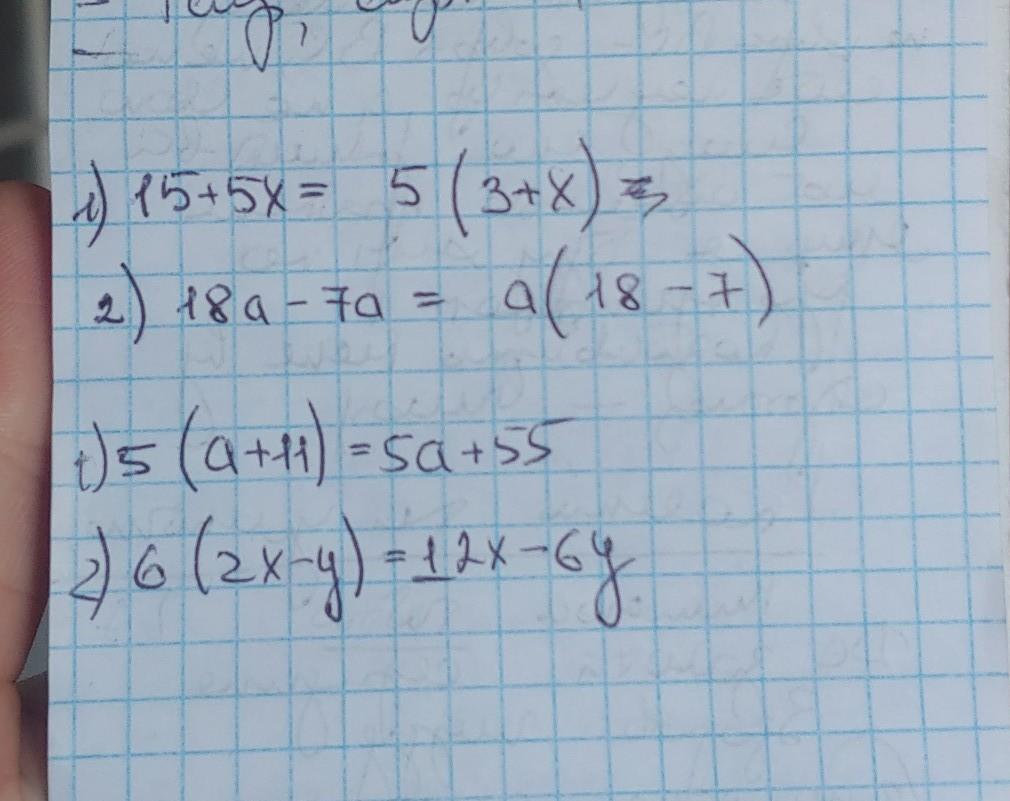 1) 15+5x = 5 (3+x)
2) 18a - 7a = a(18-7)
1) 5 (a+11) = 5a+55
2) 6 (2x-y) = 12x-6y